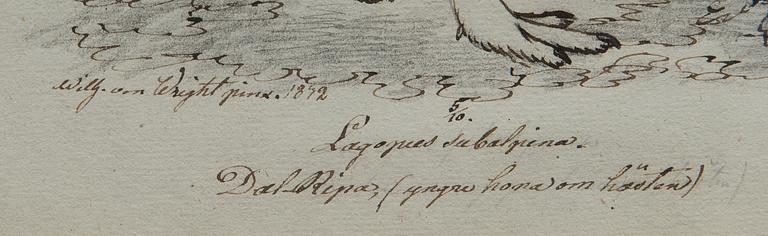 Wilh. von Wright pinx. 1842
5/10.
Lagopus subalpina.
Dal-Ripa, (yngre hona om hösten)